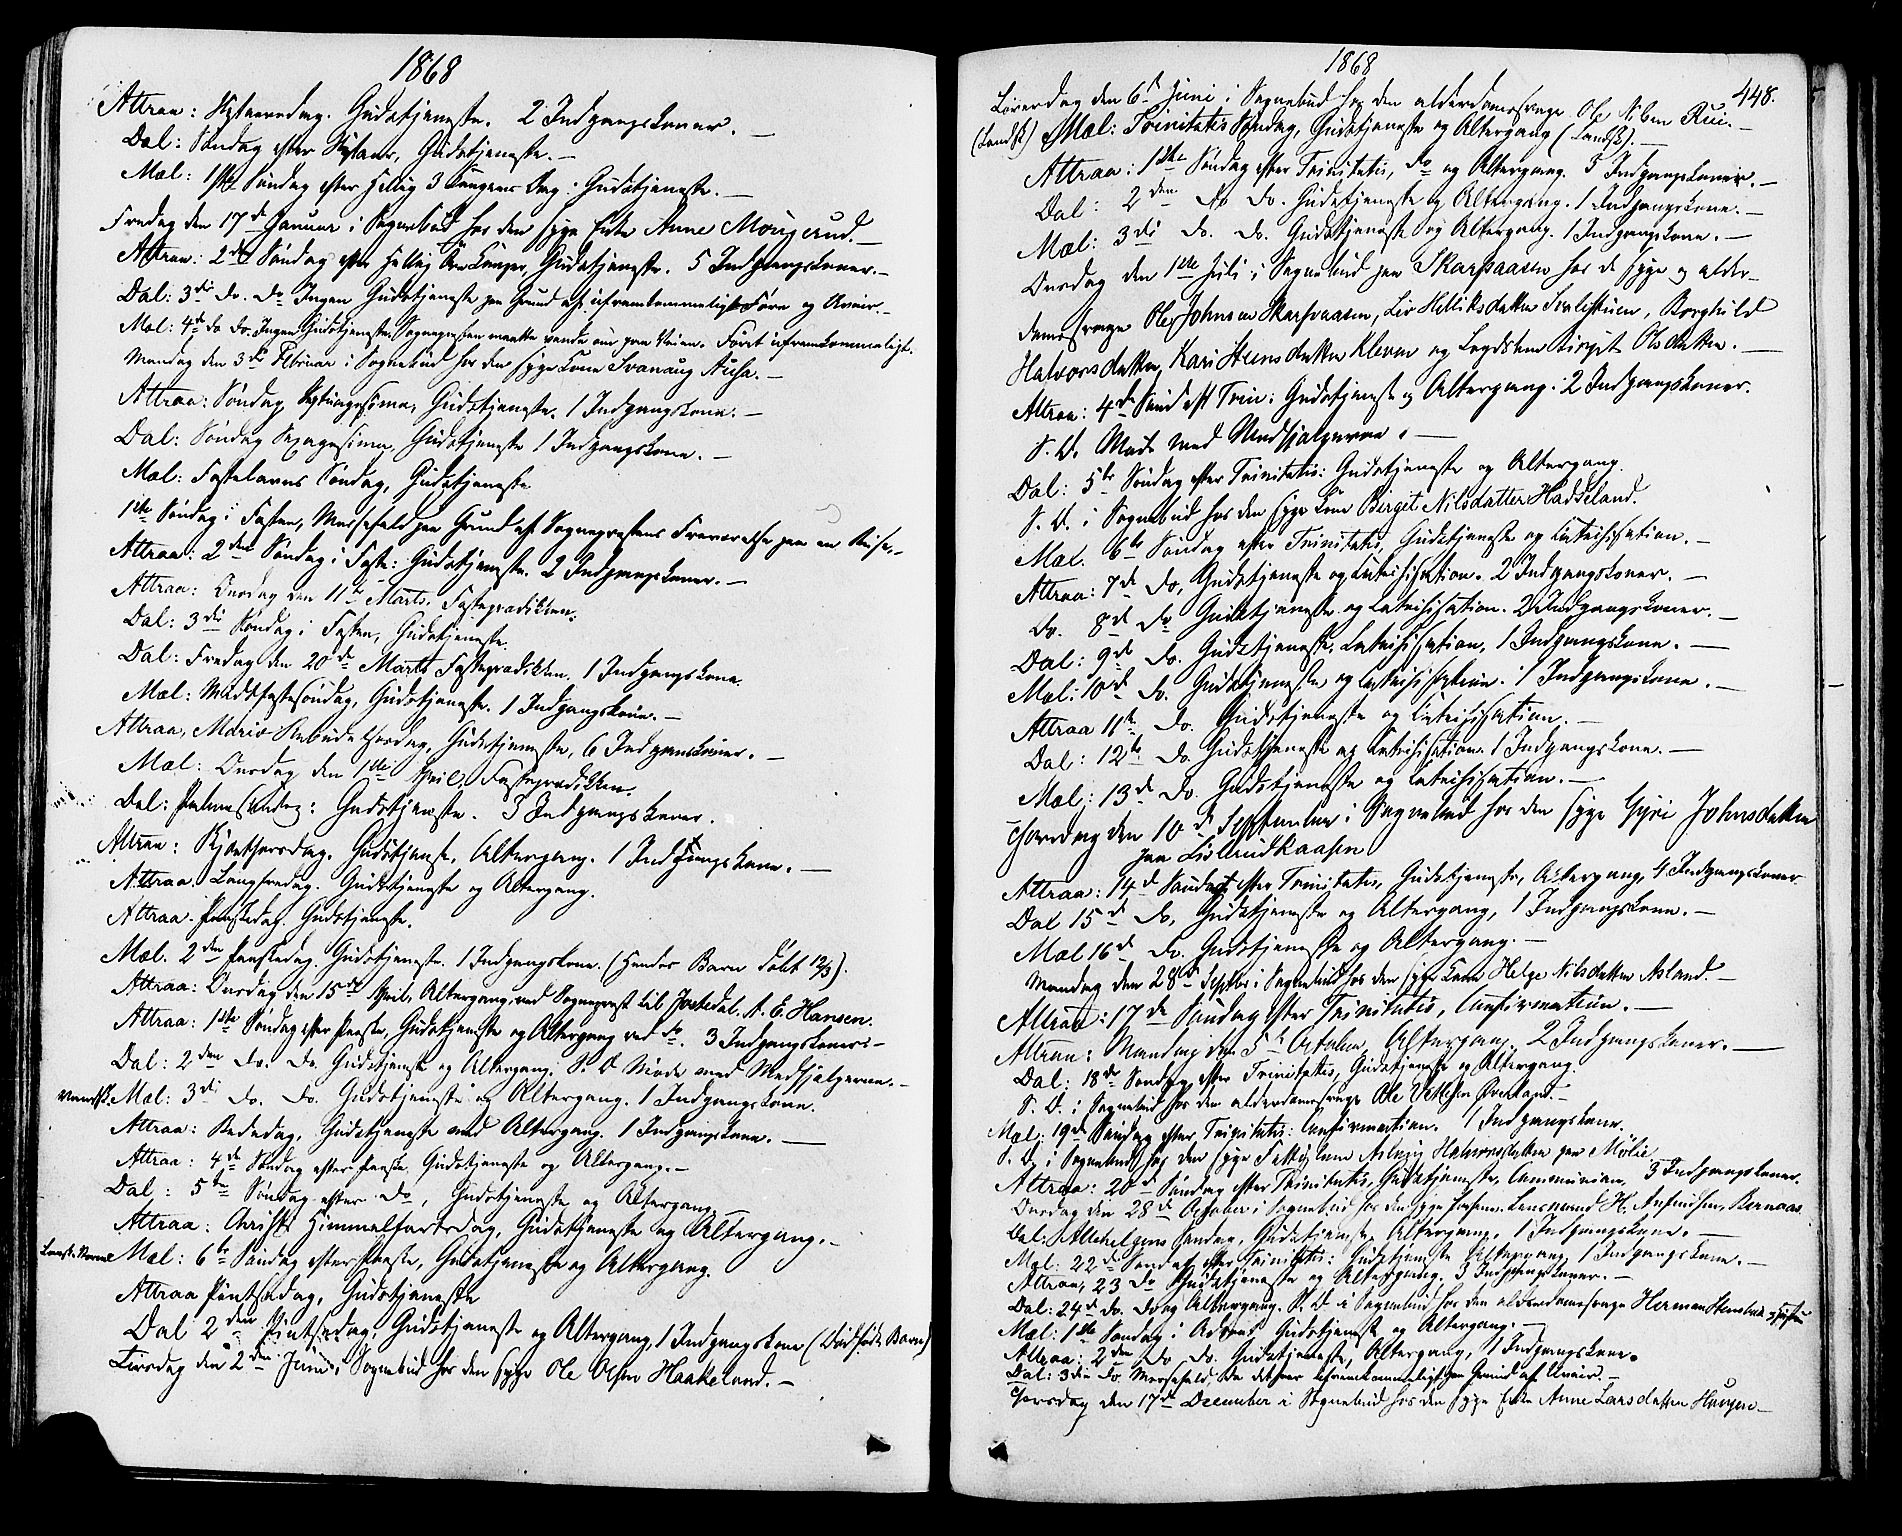 1868
Attraa: Nytaarsdag. Gudstjeneste. 2 Indgangskoner. —
Dal: Søndag efter Nytaar, Gudstjeneste. —
Mæl: 1ste Søndag efter Hellig 3 Kongers Dag: Gudstjeneste. —
Fredag den 17de Januar i Sognebud hos den syge Enke Anne Mougerud. —
Attraa: 2den Søndag efter Hellig tre Konger, Gudstjeneste. 5 Indgangskoner. —
Dal: 3die do. do Ingen Gudstjeneste paa Grund af ufremkommeligt Føre og Uveir. —
Mæl: 4de do do. Ingen Gudstjeneste. Sognepresten maatte vende om paa Veien. Føret ufremkommeligt.
Mandag den 3die Februar i Sognebud hos den syge Kone Svanaug
Attraa: Søndag Septuagesima, Gudstjeneste. 1 Indgangskone. —
Dal: Søndag Sexagesima, Gudstjeneste 1 Indgangskone. —
Mæl: Fastelavns Søndag, Gudstjeneste
1ste Søndag i Fasten, Messefald paa Grund af Sogneprestens Fraværelse paa en Reise. —
Attraa: 2den Søndag i Faste: Gudstjeneste. 2 Indgangskoner. —
Attraa: Onsdag den 11te Marts, Fasteprædiken.
Dal: 3die Søndag i Fasten, Gudstjeneste.
Dal: Fredag den 20de Marts Fasteprædiken. 1 Indgangskone.
Mæl: Midtfastesøndag, Gudstjeneste. 1 Indgangskone. —
Attraa, Mariæ Bebudelsesdag, Gudstjeneste, 6 Indgangskoner. —
Mæl: Onsdag den 1ste April, Fasteprædiken.
Dal: Palmesøndag: Gudstjeneste. 3 Indgangskoner.
Attraa: Skjærthorsdag, Gudstjeneste, Altergang. 1 Indgangskone. —
Attraa. Langfredag. Gudstjeneste og Altergang.
Attraa. Paaskedag. Gudstjeneste.
Mæl. 2den Paaskedag. Gudstjeneste. 1 Indgangskone. (Hendes Barn døbt 12/3).
Attraa: Onsdag den 15de April, Altergang ved Sogneprest til Jostedal. A. E. Hansen.
Attraa: 1ste Søndag efter Paaske, Gudstjeneste og Altergang ved do. 3 Indgangskoner. —
Dal: 2den do. do. Gudstjeneste og Altergang. S. D. Møde med Medhjælperne. —
Mæl: 3die do. do. Gudstjeneste og Altergang. 1 Indgangskone.
Attraa: Bededag, Gudstjeneste med Altergang. 1 Indgangskone. —
Attraa: 4de Søndag efter Paaske, Gudstjeneste og Altergang. —
Dal: 5te Søndag efter do, Gudstjeneste og Altergang. —
Attraa: Christi Himmelfartsdag, Gudstjeneste og Altergang. —
Mæl: 6te Søndag efter Paaske, Gudstjeneste og Altergang.
Attraa Pintsedag, Gudstjeneste
Dal 2den Pintsedag, Gudstjeneste og Altergang, 1 Indgangskone (Dødfødt Barn)
Tirsdag den 2den Juni, i Sognebud hos den syge Ole Olsen Haakeland. —
1868
448.
Løverdag den 6te Juni i Sognebud hos den alderdomssvage Ole Nilsen Rui. —
(Landsk) Mæl: Trinitatis Søndag, Gudstjeneste og Altergang (Landsk). —
Attraa: 1ste Søndag efter Trinitatis, do og Altergang. 5 Indgangskoner. —
Dal: 2den do do. Gudstjeneste og Altergang. 1 Indgangskone. —
Mæl: 3die do. do. Gudstjeneste og Altergang. 1 Indgangskone. —
Onsdag den 1ste Juli i Sognebud paa Skarpaasen hos de syge og alder-
domssvage Ole Johnsen Skarpaasen, Liv Helliksdatter Borghild
Halvorsdatter, Kari Steensdatter Kleven og Birgit Olsdatter. —
Attraa: 4de Sønd. eft Trin: Gudstjeneste og Altergang. 2 Indgangskoner.
S. D. Møde med Medhjælperne. —
Dal: 5te Søndag efter Trinitatis: Gudstjeneste og Altergang.
S. D. i Sognebud hos den syge Kone Birget Nilsdatter Haddeland.
Mæl. 6te Søndag efter Trinitatis, Gudstjeneste og Catechisation. —
Attraa: 7de do, Gudstjeneste og Catechisation. 2 Indgangskoner. —
do. 8de do Gudstjeneste og Catechisation. 2 Indgangskoner. —
Dal: 9de do. Gudstjeneste, Catechisation, 1 Indgangskone. —
Mæl: 10de do. Gudstjeneste og Catechisation. 1 Indgangskone. —
Attraa 11te do. Gudstjeneste og Catechisation. —
Dal: 12te do. Gudstjeneste og Catechisation. 1 Indgangskone. —
Mæl: 13de do. Gudstjeneste og Catechisation. —
Thorsdag den 10de September i Sognebud hos den syge Gyri Johnsdatter
paa Lislerudkaasen
Attraa: 14de Søndag efter Trinitatis, Gudstjeneste, Altergang, 4 Indgangskoner
Dal 15de do, Gudstjeneste og Altergang, 1 Indgangskone. —
Mæl 16de do. Gudstjeneste og Altergang. —
Mandag den 28de Septbr i Sognebud hos den syge Kone Helge Nilsdatter Asland. —
Attraa: 17de Søndag efter Trinitatis, Confirmation. —
Attraa: Mandag den 5te October Altergang. 2 Indgangskoner. —
Dal: 18de Søndag efter Trinitatis, Gudstjeneste og Altergang.
S. D. i Sognebud hos den alderdomssvage Ole Øverland. —
Mæl: 19de Søndag efter Trinitatis: Confirmation. 1 Indgangskone.
S. D. i Sognebud hos den syge Aslaug Halvorsdatter paa Mølie.
Attraa: 20de Søndag efter Trinitatis, Gudstjeneste, Communion, 3 Indgangskoner.
Onsdag den 28de October i Sognebud hos den syge Lensmand H. Bernaas.
Dal: Allehelgens Søndag, Gudstjeneste, Altergang, 1 Indgangskone. —
Mæl: 22de Sønd. efter Trinitatis: Gudstjeneste Altergang, 1 Indgangskone. —
Attraa, 23 do Gudstjeneste og Altergang. 3 Indgangskoner. —
Dal: 24de do. do og Altergang. S. D. i Sognebud hos den alderdomssvage Herman
Mæl: 1ste Søndag i Advent Gudstjeneste og Altergang. —
Attraa: 2den do do. Gudstjeneste, Altergang, 1 Indgangskone.
Dal: 3die do Messefald, da det var ufremkommeligt paa Grund af Uveir. —
Thorsdag den 17de December i Sognebud hos den syge Enke Anne Larsdatter Haugen —